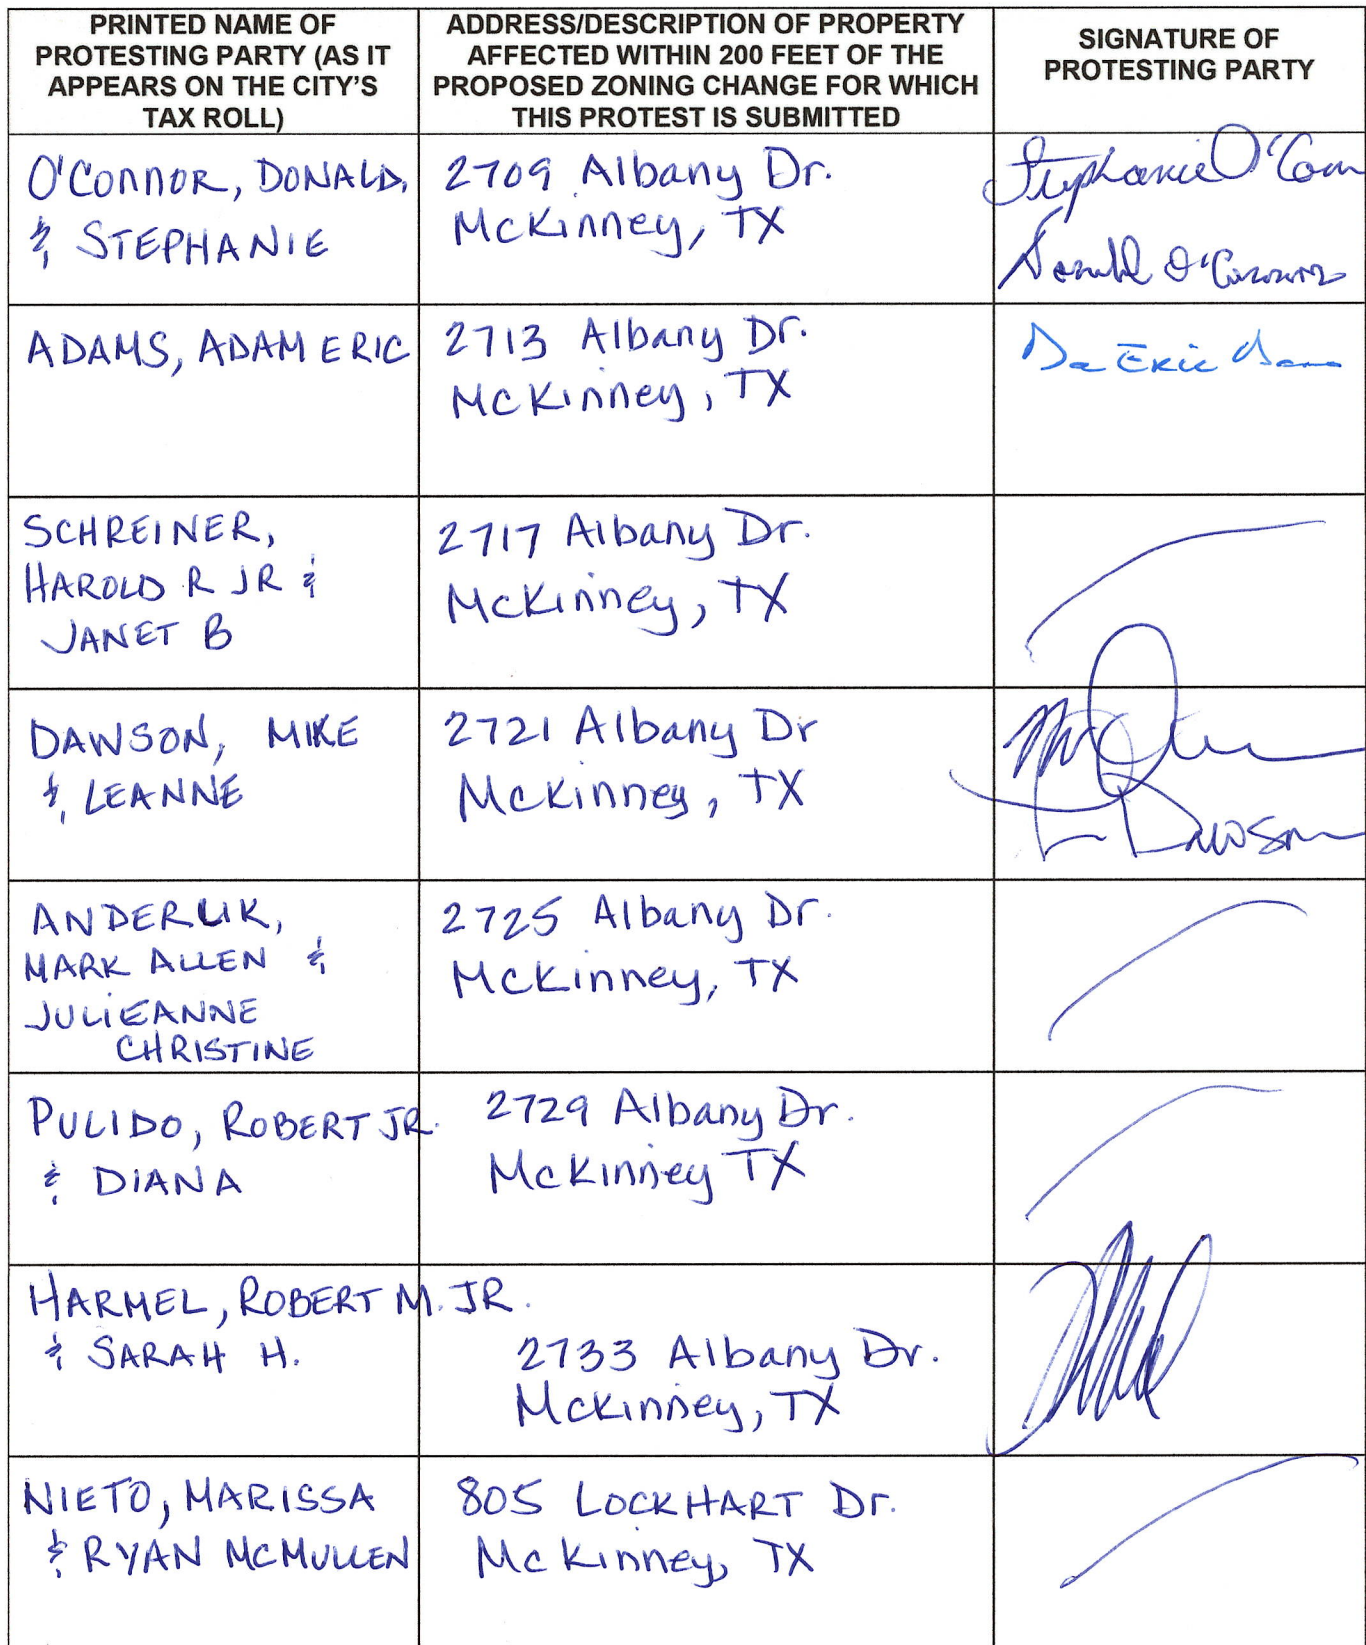 PRINTED NAME OF
PROTESTING PARTY (AS IT
APPEARS ON THE CITY'S
TAX ROLL)
ADDRESS/DESCRIPTION OF PROPERTY
AFFECTED WITHIN 200 FEET OF THE
PROPOSED ZONING CHANGE FOR WHICH
THIS PROTEST IS SUBMITTED
SIGNATURE OF
PROTESTING PARTY
O'CONNOR, DONALD,
& STEPHANIE
2709 Albany Dr.
McKinney, TX
Stephanie O'Conn
Donald O'Connor
ADAMS, ADAM ERIC
2713 Albany Dr.
McKinney, TX
Eric
SCHREINER,
HAROLD R JR &
JANET B
2717 Albany Dr.
McKinney, TX
DAWSON, MIKE
& LEANNE
2721 Albany Dr
McKinney, TX
L Dawson
ANDERLIK,
MARK ALLEN &
JULIEANNE
CHRISTINE
2725 Albany Dr.
McKinney, TX
PULIDO, ROBERT JR.
& DIANA
2729 Albany Dr.
McKinney TX
HARMEL, ROBERT M. JR.
& SARAH H.
2733 Albany Dr.
McKinney, TX
NIETO, MARISSA
& RYAN MCMULLEN
805 LOCKHART Dr.
McKinney, TX